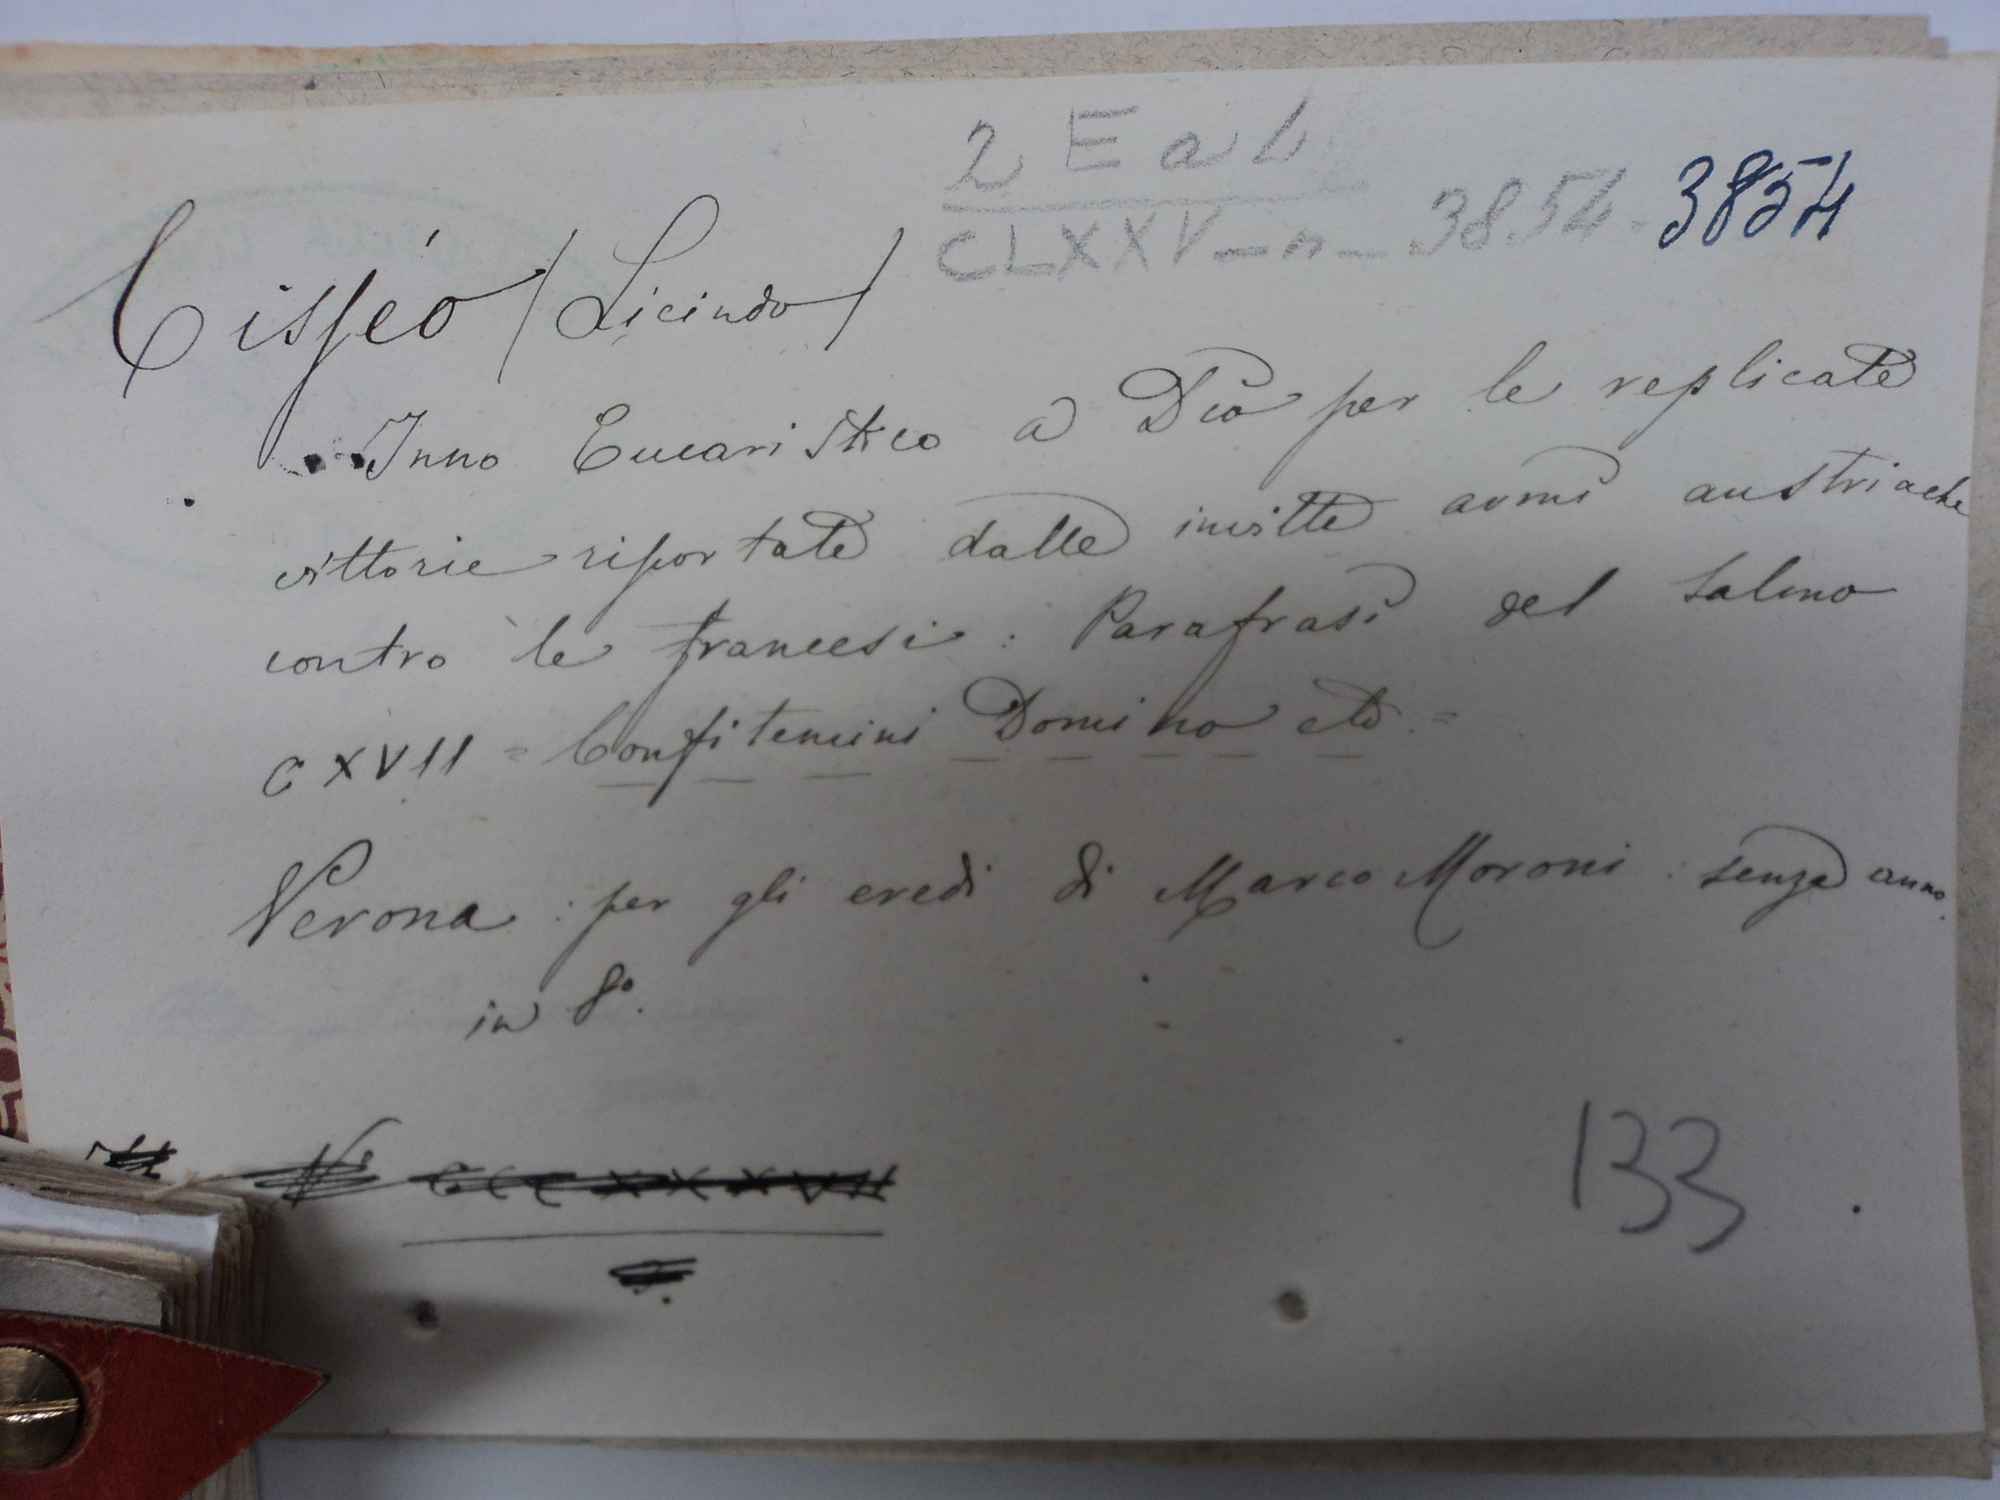 2 E a L
CLXXV - n - 3854. 3854
Cisséo (Licindo)
Inno Eucaristico a Dio per le replicate
vittorie riportate dalle invitte armi austriache
contro le francesi: Parafrasi del Salmo
CXVII = Confitemini Domino etc. =
Verona: per gli eredi di Marco Moroni: senza anno.
in 8º.
Nº CCCXXXXVII
133